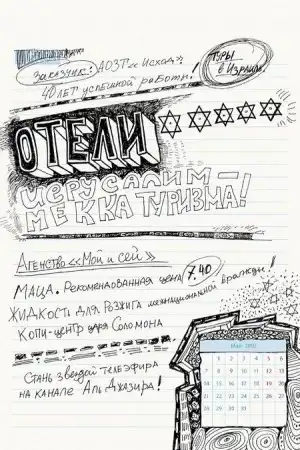 Заказчик: АОЗТ «Исход»
40 лет успешной работы!
Туры
в Израиль
ОТЕЛИ
ИЕРУСАЛИМ –
МЕККА ТУРИЗМА!
Агенство «Мой и сей»
МАЦА. Рекоменованная цена 7.40
Жидкости для розжига межнациональной вражды!
Копи-центр царя Соломона
Стань звездой телеэфира
на канале Аль Джазира!
Май
1 2 3 4 5 6
7 8 9 10 11 12 13
14 15 16 17 18 19 20
21 22 23 24 25 26 27
28 29 30 31